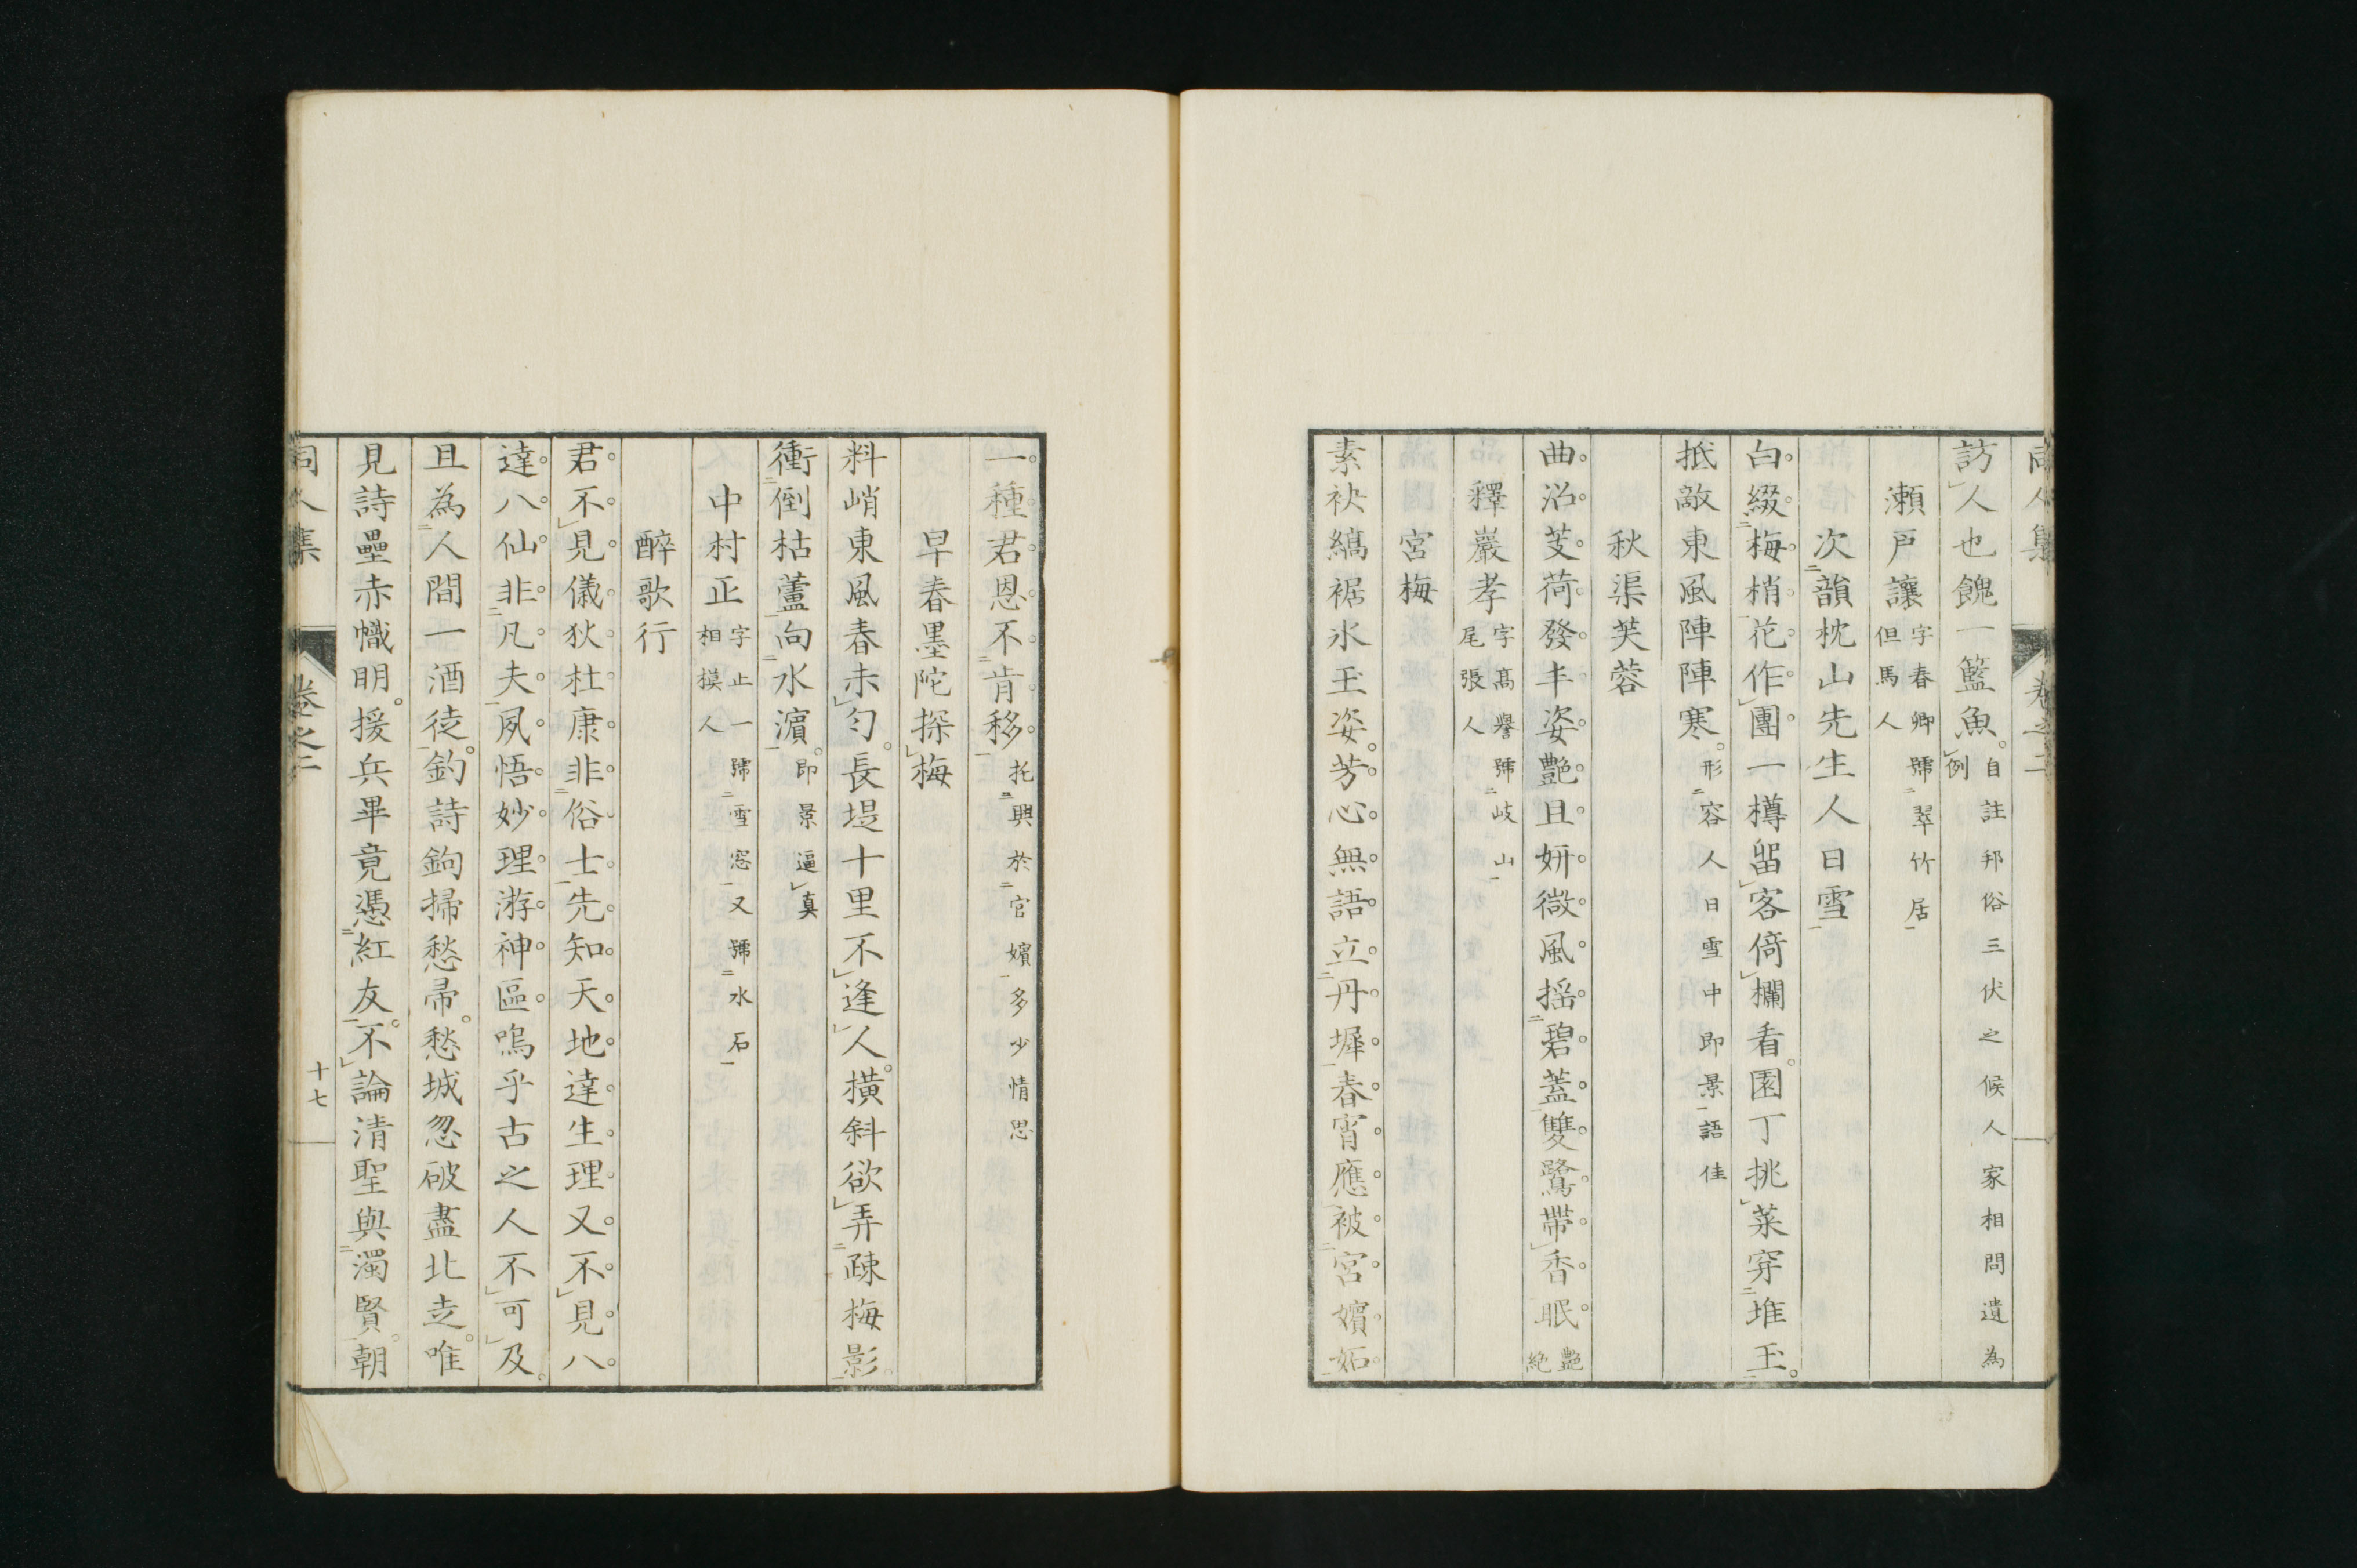 同人集 卷之二
訪人也餽一籃魚。自註邦俗三伏之候人家相問遺為例
瀨戸讓 字春卿號翠竹居但馬人
次韻枕山先生人日雪
白綴梅梢花作團一樽留客倚欄看。園丁挑菜穿堆玉。
抵敵東風陣陣寒。形容人日雪中即景語佳
秋渠芙蓉
曲沼芰荷發丰姿艷且妍微風揺碧蓋雙鷺帶香眠 艷絶
釋巖孝 字髙譽號岐山尾張人
宮梅
素袂縞裾氷玉姿。芳心無語立丹墀春宵應被宮嬪妬
一種君恩不肯移 托興於宮嬪多少情思
早春墨陀探梅
料峭東風春未匀。長堤十里不逢人。橫斜欲弄疎梅影。
衝倒枯蘆向水濵。即景逼真
中村正 字止一號雪窓又號水石相模人
醉歌行
君不見儀狄杜康非俗士先知天地達生理又不見八
達八仙非凡夫夙悟妙理游神區嗚乎古之人不可及。
且為人間一酒徒。釣詩鉤掃愁帚。愁城忽破盡北走。唯
見詩壘赤幟明。援兵畢竟憑紅友。不論清聖與濁賢。朝
同人集 卷之二 十七